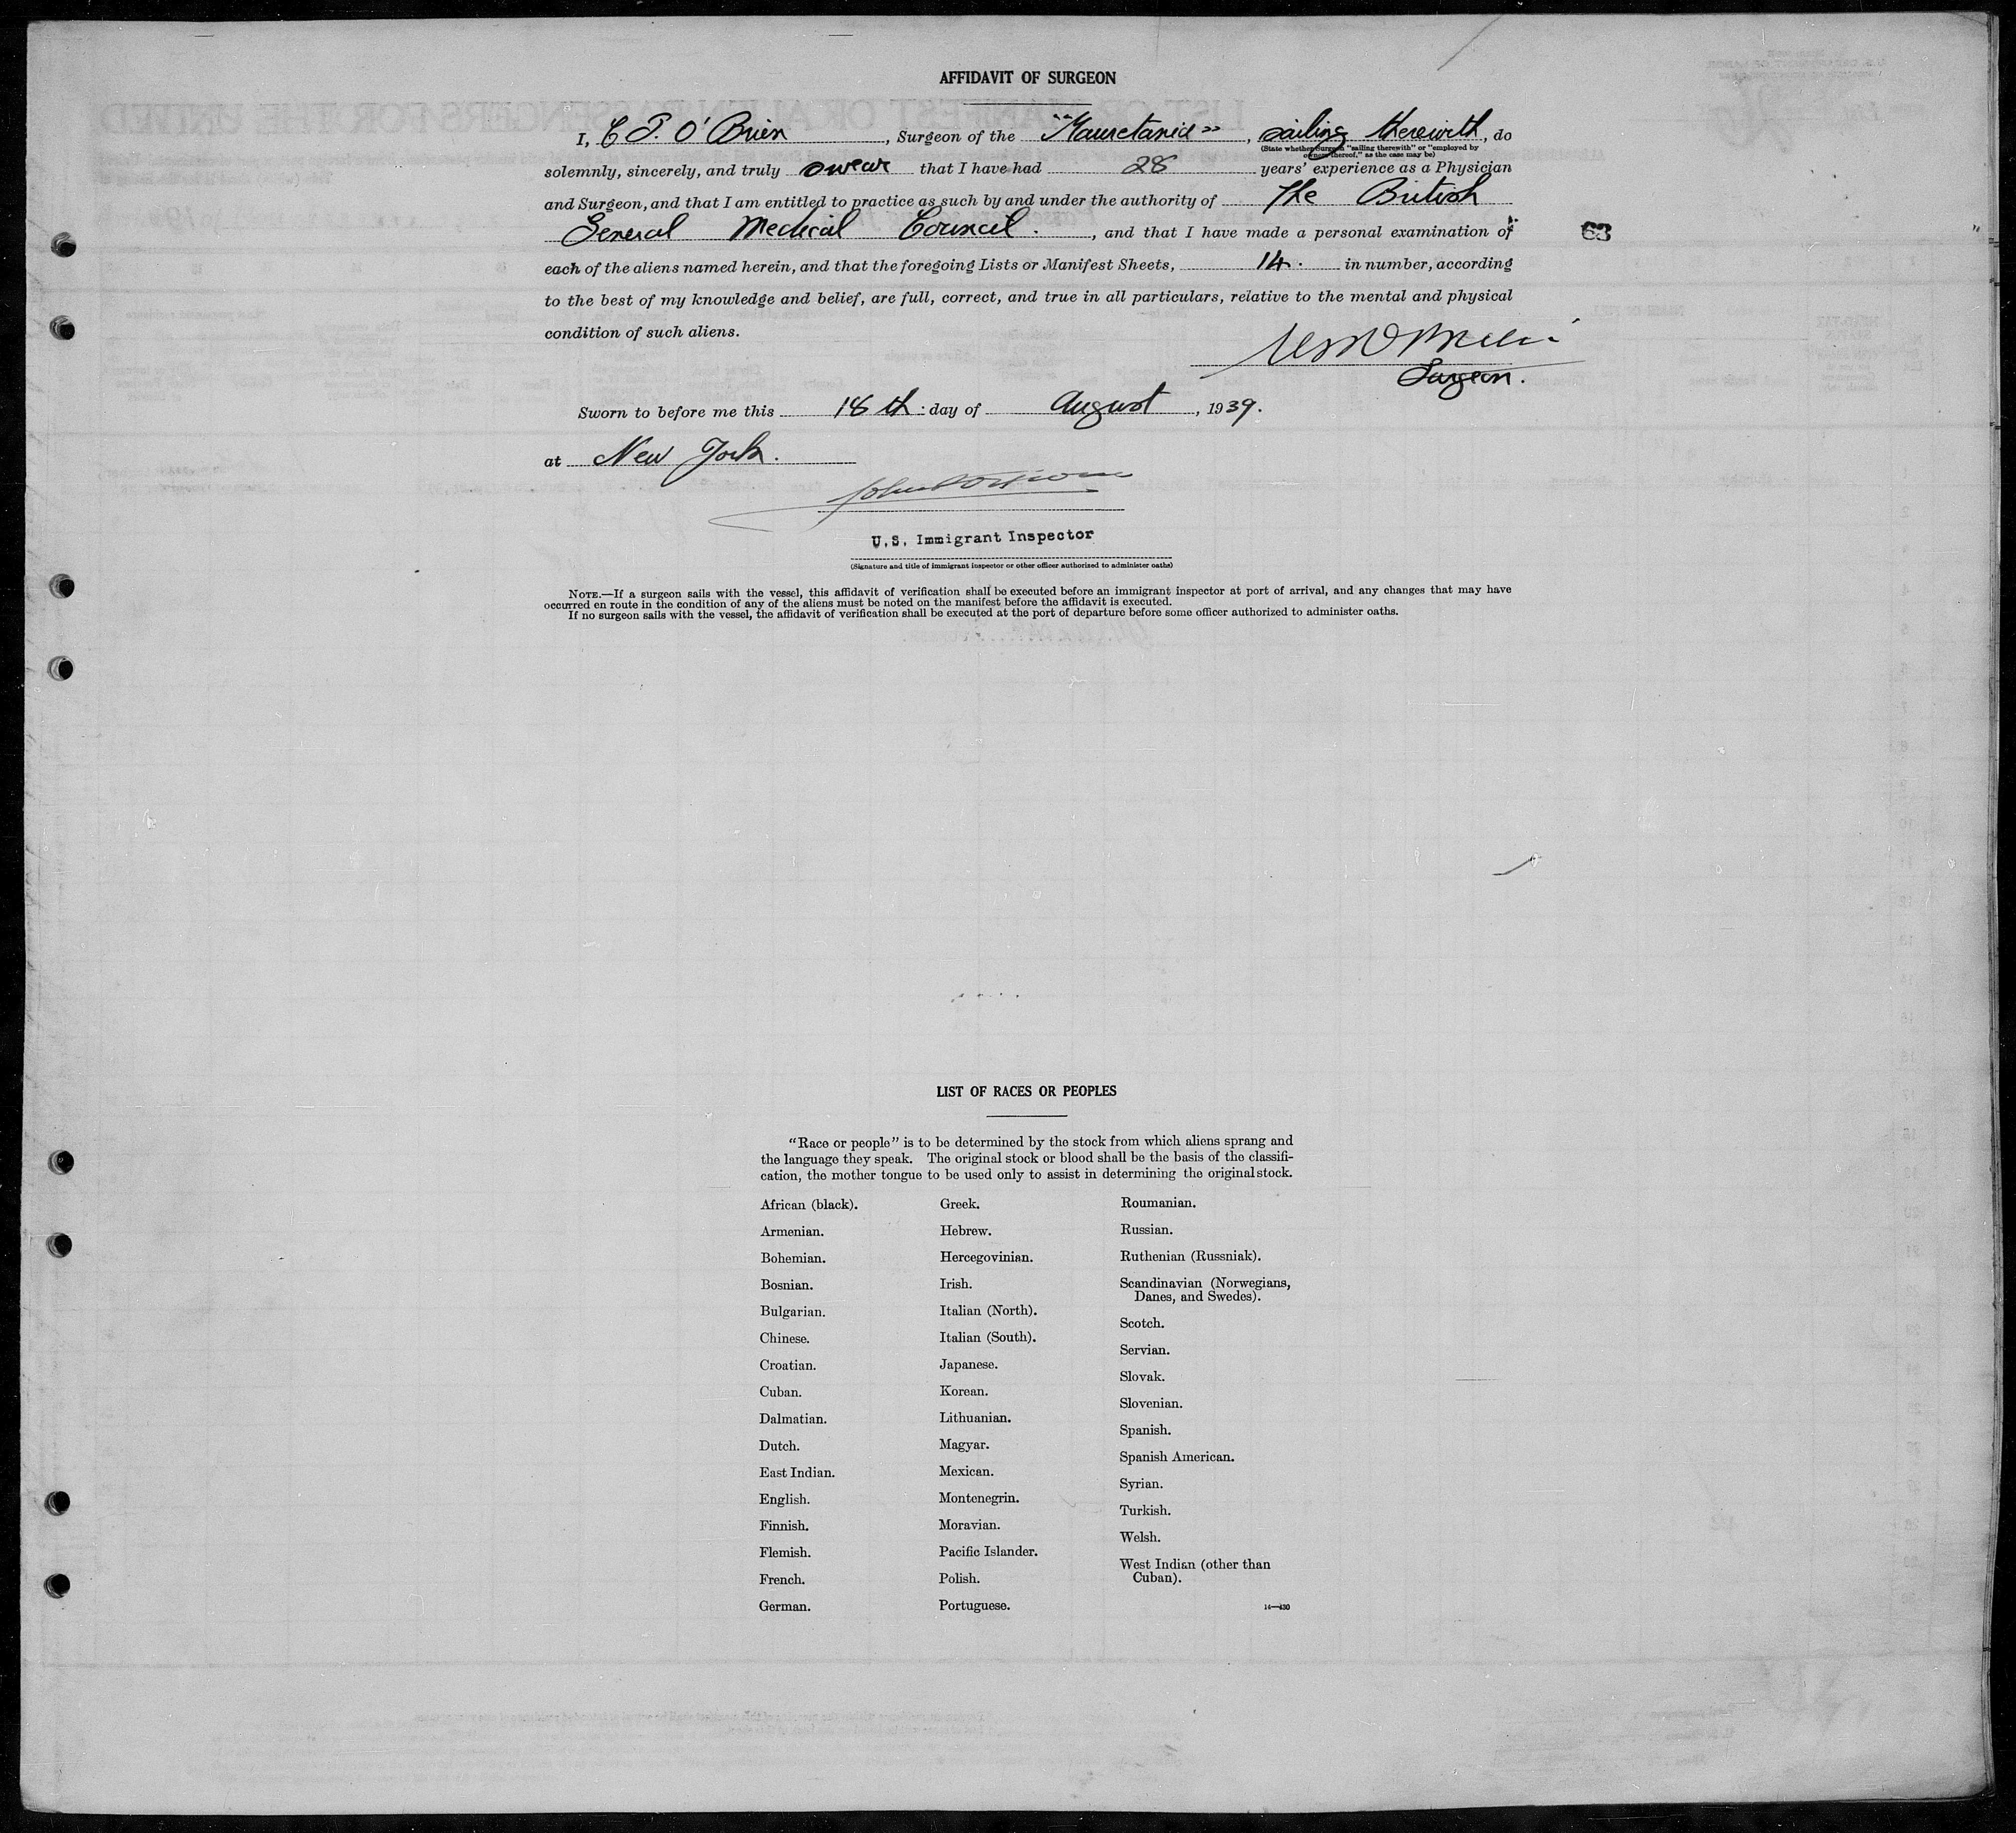 AFFIDAVIT OF SURGEON
I, C P. O'Brien, Surgeon of the "Mauretania", sailing therewith, do
(State whether Surgeon "sailing therewith" or "employed by
owners thereof," as the case may be)
solemnly, sincerely, and truly swear that I have had 28 years' experience as a Physician
and Surgeon, and that I am entitled to practice as such by and under the authority of The British
General Medical Council., and that I have made a personal examination of
63
each of the aliens named herein, and that the foregoing Lists or Manifest Sheets, 14. in number, according
to the best of my knowledge and belief, are full, correct, and true in all particulars, relative to the mental and physical
condition of such aliens.
Surgeon.
Sworn to before me this 18th. day of August, 1939.
at New York.
U.S. Immigrant Inspector
(Signature and title of immigrant inspector or other officer authorized to administer oaths)
NOTE.—If a surgeon sails with the vessel, this affidavit of verification shall be executed before an immigrant inspector at port of arrival, and any changes that may have
occurred en route in the condition of any of the aliens must be noted on the manifest before the affidavit is executed.
If no surgeon sails with the vessel, the affidavit of verification shall be executed at the port of departure before some officer authorized to administer oaths.
LIST OF RACES OR PEOPLES
"Race or people" is to be determined by the stock from which aliens sprang and
the language they speak. The original stock or blood shall be the basis of the classifi-
cation, the mother tongue to be used only to assist in determining the original stock.
African (black).
Armenian.
Bohemian.
Bosnian.
Bulgarian.
Chinese.
Croatian.
Cuban.
Dalmatian.
Dutch.
East Indian.
English.
Finnish.
Flemish.
French.
German.
Greek.
Hebrew.
Hercegovinian.
Irish.
Italian (North).
Italian (South).
Japanese.
Korean.
Lithuanian.
Magyar.
Mexican.
Montenegrin.
Moravian.
Pacific Islander.
Polish.
Portuguese.
Roumanian.
Russian.
Ruthenian (Russniak).
Scandinavian (Norwegians,
Danes, and Swedes).
Scotch.
Servian.
Slovak.
Slovenian.
Spanish.
Spanish American.
Syrian.
Turkish.
Welsh.
West Indian (other than
Cuban).
14—430